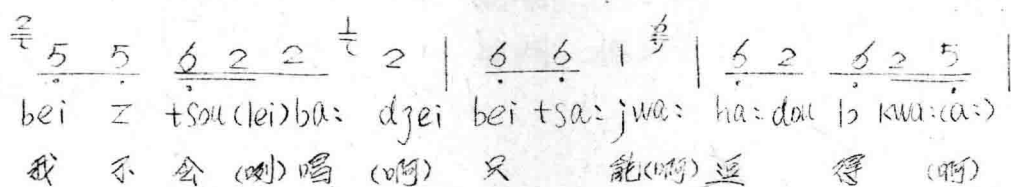 5 5 6 2 2 2 | 6 6 1 | 6 2 6 2 5 |
bei z tsou(lei)ba: dʒei bei tsa: jwa: ha: dou lɔ kwa:(a:)
我 不 会 (咧) 唱 (啊) 只 能(啊) 逗 得 (啊)